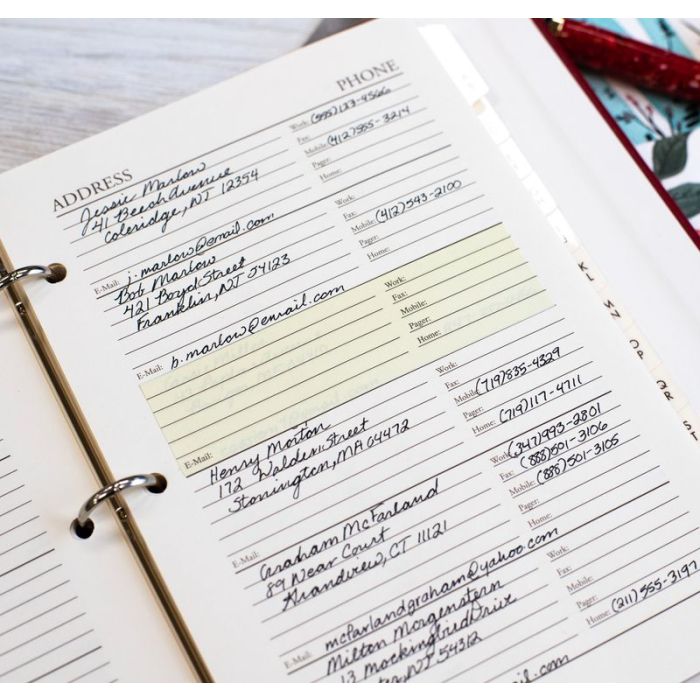 ADDRESS PHONE
Jessie Marlow
41 Beech Avenue
Coleridge, NJ
E-Mail: j.marlow@email.com
Work: (555)123-4566
Fax:
Mobile: (412)555-3214
Pager:
Home:
Bob Marlow
421 Boyd Street
Franklin, NJ
E-Mail: b.marlow@email.com
Work:
Fax:
Mobile: (412)543-2100
Pager:
Home:
E-Mail:
Work:
Fax:
Mobile:
Pager:
Home:
Henry Morton
172 Walden Street
Stonington, MA 64472
E-Mail:
Work:
Fax:
Mobile: (719)835-4329
Pager:
Home: (719)117-4711
Graham McFarland
89 Near Court
Grandview, CT 11121
E-Mail: mcfarlandgraham@yahoo.com
Work: (347)993-2801
Fax: (888)501-3106
Mobile: (888)501-3105
Pager:
Home:
Milton Morgenstern
13 Mockingbird Drive
NJ 54312
il.com
Work:
Fax:
Mobile:
Pager:
Home: (211)555-3197
KL
MN
OP
QR